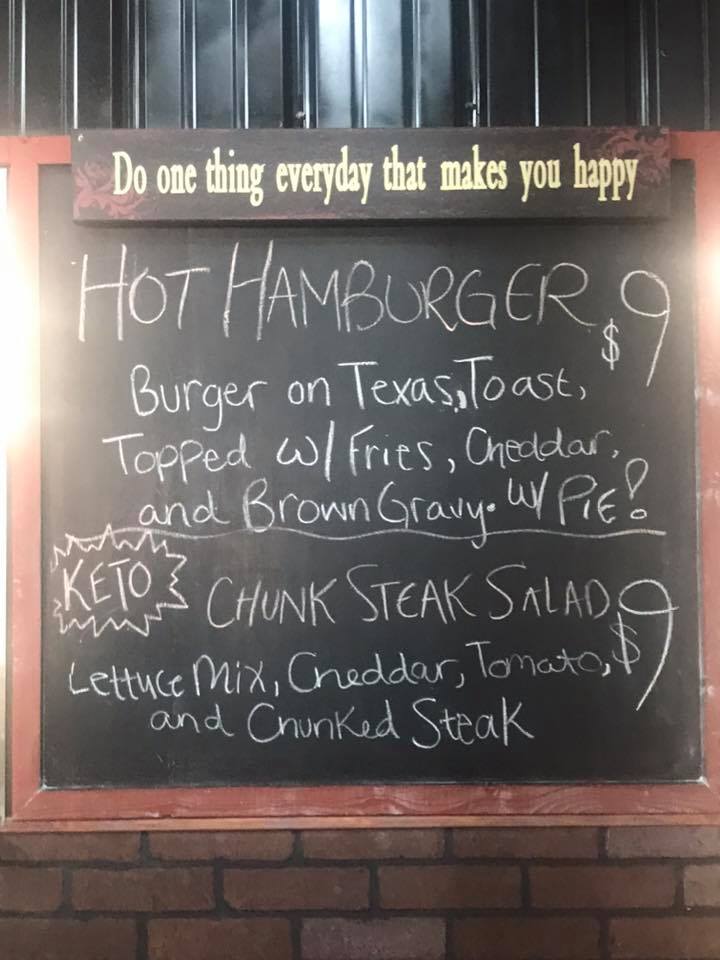 Do one thing everyday that makes you happy
HOT HAMBURGER $9
Burger on Texas Toast,
Topped w/ Fries, Cheddar,
and Brown Gravy. w/ PIE!
KETO CHUNK STEAK SALAD $9
Lettuce Mix, Cheddar, Tomato,
and Chunked Steak